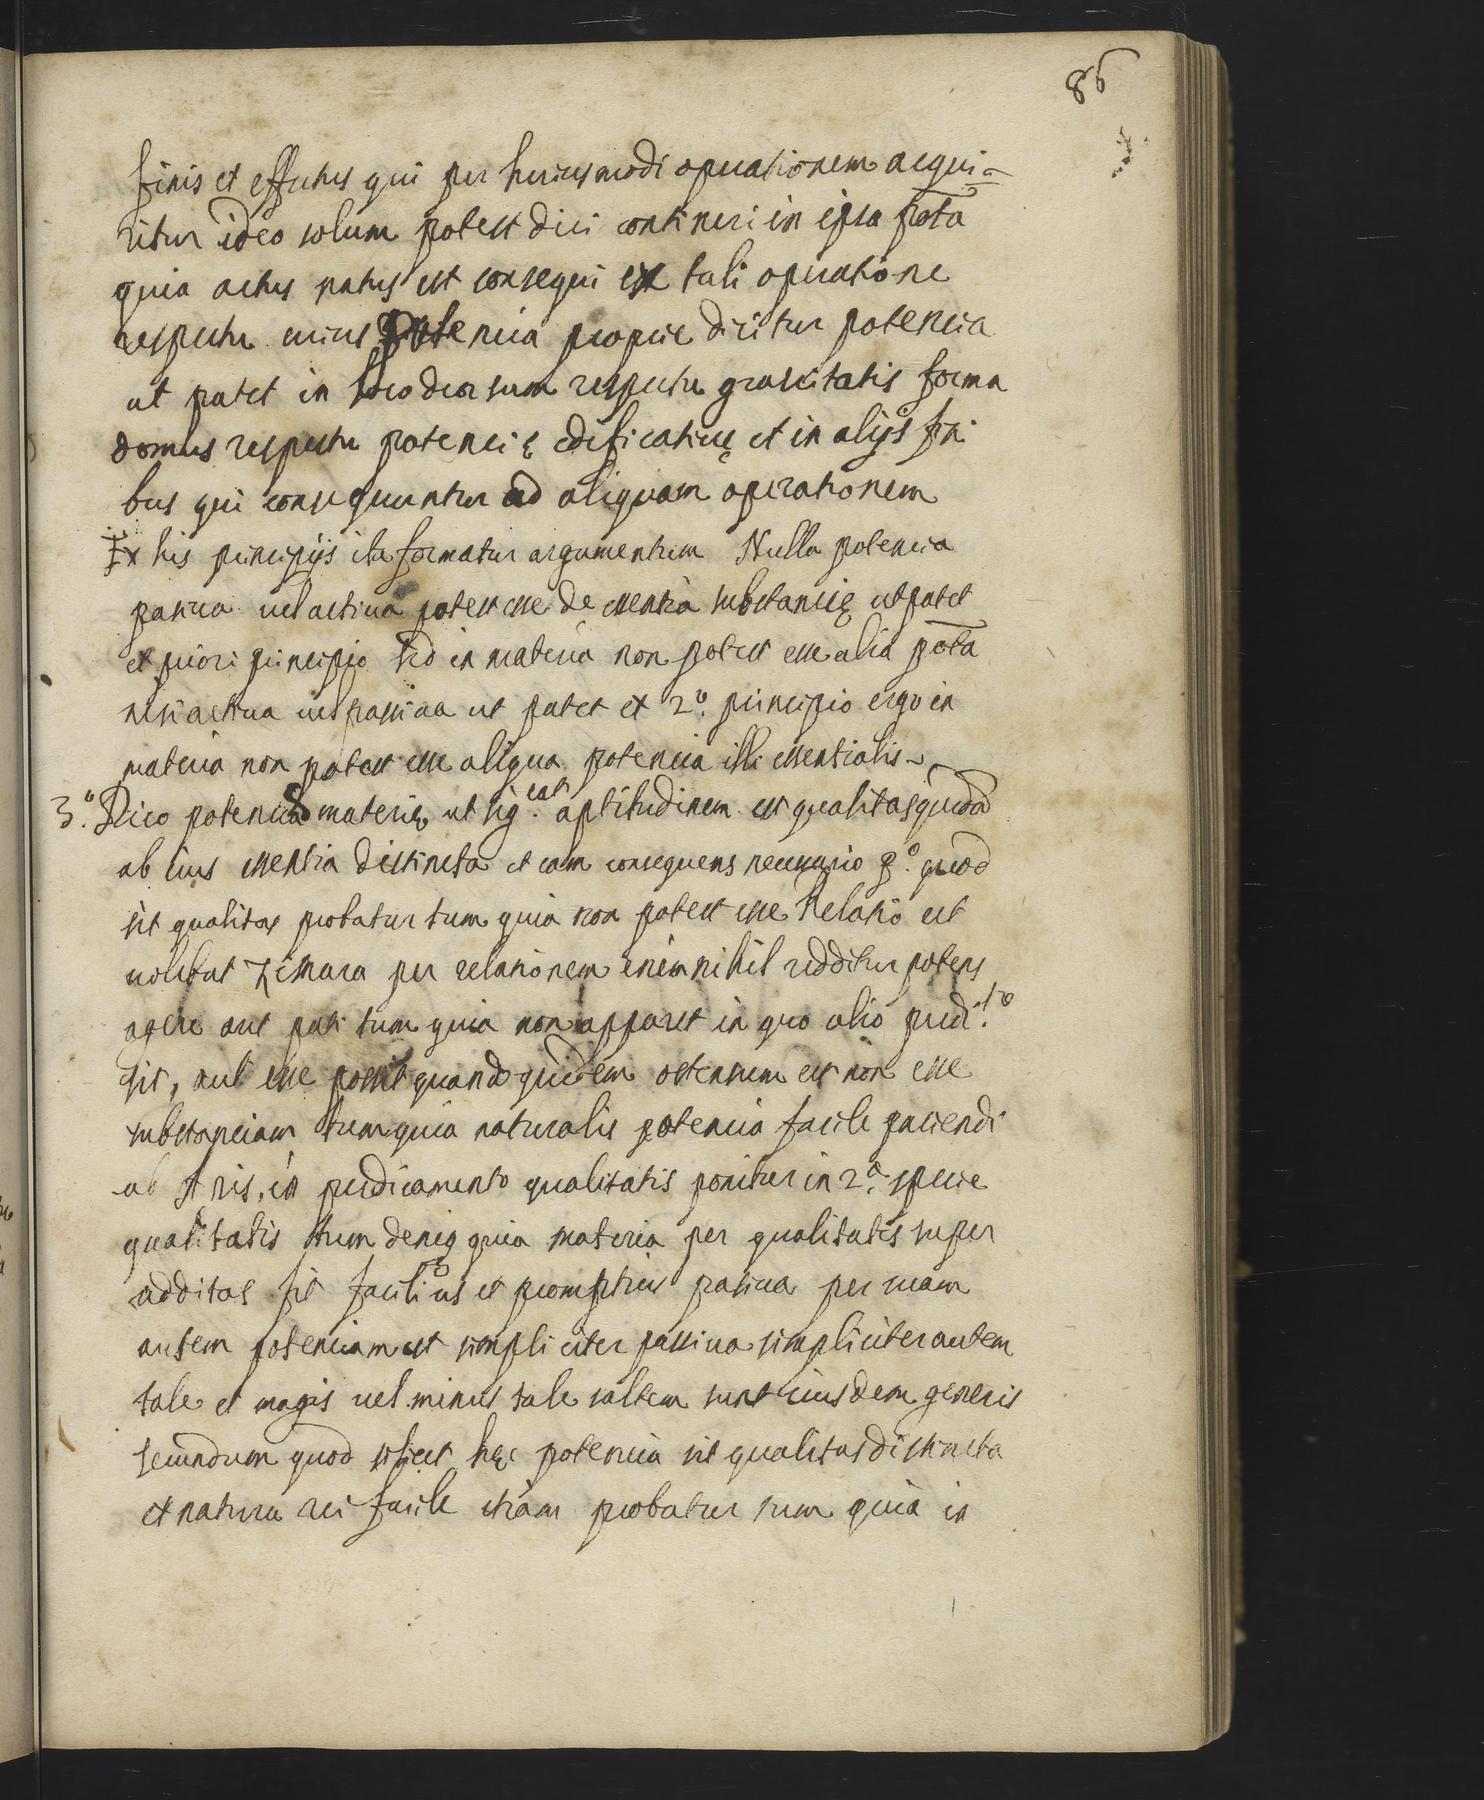 85
finis et effectus qui per huiusmodi operationem acqui=
ritur ideo solum potest dici contineri in ipsa pota
quia actus natus est consequi ex tali operatione
respectu cuius potencia proprie dicitur potencia
ut patet in loco deorsum respectu gravitatis forma
domus respectu potencię edificativę et in alijs fini
bus qui consequuntur ad aliquam operationem
Ex his principijs ita formatur argumentum Nulla potencia
passiva vel activa potest esse de essentia substancię ut patet
ex priori principio sed in materia non potest esse alia pota
nisi activa vel passiva ut patet ex 2.º principio ergo in
materia non potest esse aliqua potencia illi essentialis
3.º Dico potencia materię ut sig.cat aptitudinem est qualitas quędã
ab eius essentia distincta et eam consequens necessario p.º quod
sit qualitas probatur tum quia non potest esse Relatio ut
volebat Zimara per relationem enim nihil redditur potens
agere aut pati tum quia non apparet in quo alio pred.to
sit, aut esse possit quandoquidem ostensum est non esse
substanciam tum quia naturalis potencia facile paciendi
ab Aris, in predicamento qualitatis ponitur in 2.ª specie
qualitatis tum deniq quia materia per qualitates super
additas fit facilius et promptius passiva per suam
autem potenciam est simpliciter passiva simpliciter autem
tale et magis vel minus tale saltem sunt eiusdem generis
secundum quod scilicet hęc potencia sit qualitas distincta
ex natura rei facile etiam probatur tum quia in